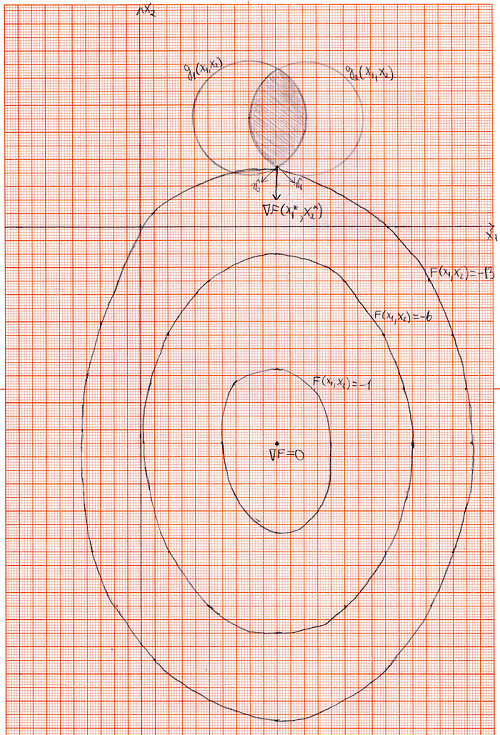 x₂
g₁(x₁,x₂)
g₂(x₁,x₂)
∇F(x₁*,x₂*)
x₁
F(x₁,x₂)=-13
F(x₁,x₂)=-6
F(x₁,x₂)=-1
∇F=0